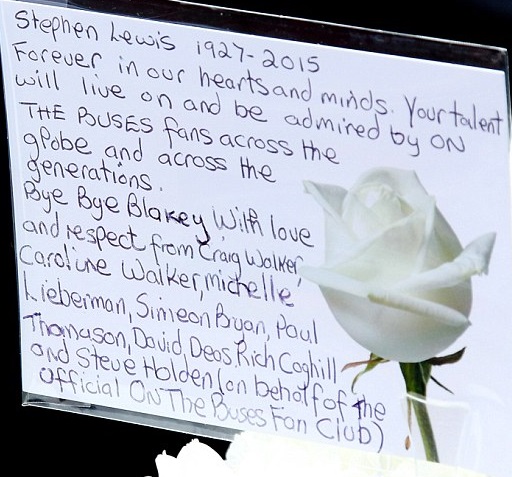 Stephen Lewis 1927-2015
Forever in our hearts and minds. Your talent
will live on and be admired by ON
THE BUSES fans across the
globe and across the
generations.
Bye Bye Blakey With love
and respect from Craig Walker,
Caroline Walker, michelle
Lieberman, Simeon Bryan, Paul
Thomason, David, Deos, Rich Coghill
and Steve Holden (on behalf of the
official ON The Buses Fan Club)